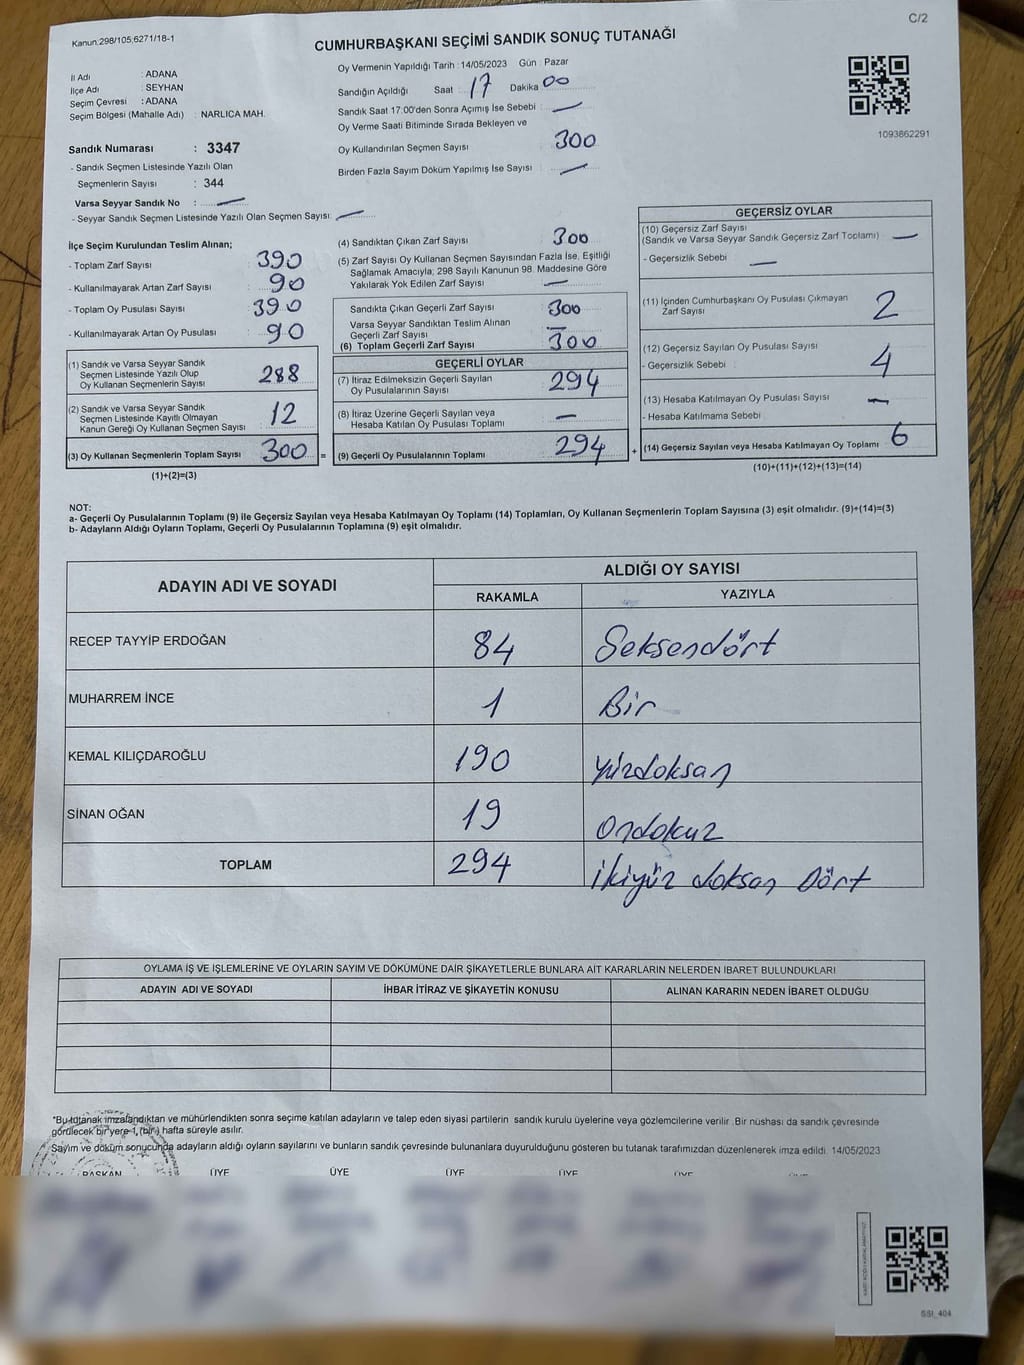 C/2
Kanun.298/105,6271/18-1
CUMHURBAŞKANI SEÇİMİ SANDIK SONUÇ TUTANAĞI
İl Adı : ADANA
İlçe Adı : SEYHAN
Seçim Çevresi : ADANA
Seçim Bölgesi (Mahalle Adı) : NARLICA MAH.
Sandık Numarası : 3347
- Sandık Seçmen Listesinde Yazılı Olan
Seçmenlerin Sayısı : 344
Varsa Seyyar Sandık No : —
- Seyyar Sandık Seçmen Listesinde Yazılı Olan Seçmen Sayısı: —
Oy Vermenin Yapıldığı Tarih : 14/05/2023 Gün : Pazar
Sandığın Açıldığı Saat : 17 Dakika 00
Sandık Saat 17:00'den Sonra Açımış İse Sebebi : —
Oy Verme Saati Bitiminde Sırada Bekleyen ve
Oy Kullandırılan Seçmen Sayısı 300
Birden Fazla Sayım Döküm Yapılmış İse Sayısı : —
1093862291
İlçe Seçim Kurulundan Teslim Alınan;
- Toplam Zarf Sayısı : 390
- Kullanılmayarak Artan Zarf Sayısı : 90
- Toplam Oy Pusulası Sayısı : 390
- Kullanılmayarak Artan Oy Pusulası : 90
(1) Sandık ve Varsa Seyyar Sandık
Seçmen Listesinde Yazılı Olup
Oy Kullanan Seçmenlerin Sayısı 288
(2) Sandık ve Varsa Seyyar Sandık
Seçmen Listesinde Kayıtlı Olmayan
Kanun Gereği Oy Kullanan Seçmen Sayısı 12
(3) Oy Kullanan Seçmenlerin Toplam Sayısı 300 =
(1)+(2)=(3)
(4) Sandıktan Çıkan Zarf Sayısı 300
(5) Zarf Sayısı Oy Kullanan Seçmen Sayısından Fazla İse, Eşitliği
Sağlamak Amacıyla; 298 Sayılı Kanunun 98. Maddesine Göre
Yakılarak Yok Edilen Zarf Sayısı —
Sandıkta Çıkan Geçerli Zarf Sayısı 300
Varsa Seyyar Sandıktan Teslim Alınan
Geçerli Zarf Sayısı —
(6) Toplam Geçerli Zarf Sayısı 300
GEÇERLİ OYLAR
(7) İtiraz Edilmeksizin Geçerli Sayılan
Oy Pusulalarının Sayısı 294
(8) İtiraz Üzerine Geçerli Sayılan veya
Hesaba Katılan Oy Pusulası Toplamı —
(9) Geçerli Oy Pusulalarının Toplamı 294 +
GEÇERSİZ OYLAR
(10) Geçersiz Zarf Sayısı
(Sandık ve Varsa Seyyar Sandık Geçersiz Zarf Toplamı) —
- Geçersizlik Sebebi : —
(11) İçinden Cumhurbaşkanı Oy Pusulası Çıkmayan
Zarf Sayısı 2
(12) Geçersiz Sayılan Oy Pusulası Sayısı 4
- Geçersizlik Sebebi :
(13) Hesaba Katılmayan Oy Pusulası Sayısı —
- Hesaba Katılmama Sebebi :
(14) Geçersiz Sayılan veya Hesaba Katılmayan Oy Toplamı 6
(10)+(11)+(12)+(13)=(14)
NOT:
a- Geçerli Oy Pusulalarının Toplamı (9) ile Geçersiz Sayılan veya Hesaba Katılmayan Oy Toplamı (14) Toplamları, Oy Kullanan Seçmenlerin Toplam Sayısına (3) eşit olmalıdır. (9)+(14)=(3)
b- Adayların Aldığı Oyların Toplamı, Geçerli Oy Pusulalarının Toplamına (9) eşit olmalıdır.
ADAYIN ADI VE SOYADI
ALDIĞI OY SAYISI
RAKAMLA YAZIYLA
RECEP TAYYİP ERDOĞAN 84 Seksendört
MUHARREM İNCE 1 Bir
KEMAL KILIÇDAROĞLU 190 yüzdoksan
SİNAN OĞAN 19 Ondokuz
TOPLAM 294 ikiyüz doksan Dört
OYLAMA İŞ VE İŞLEMLERİNE VE OYLARIN SAYIM VE DÖKÜMÜNE DAİR ŞİKAYETLERLE BUNLARA AİT KARARLARIN NELERDEN İBARET BULUNDUKLARI
ADAYIN ADI VE SOYADI İHBAR İTİRAZ VE ŞİKAYETİN KONUSU ALINAN KARARIN NEDEN İBARET OLDUĞU
*Bu tutanak imzalandıktan ve mühürlendikten sonra seçime katılan adayların ve talep eden siyasi partilerin sandık kurulu üyelerine veya gözlemcilerine verilir. Bir nüshası da sandık çevresinde
görülecek bir yere 1 (bir) hafta süreyle asılır.
Sayım ve döküm sonucunda adayların aldığı oyların sayılarını ve bunların sandık çevresinde bulunanlara duyurulduğunu gösteren bu tutanak tarafımızdan düzenlenerek imza edildi. 14/05/2023
BAŞKAN ÜYE ÜYE ÜYE ÜYE ÜYE
SSI_404